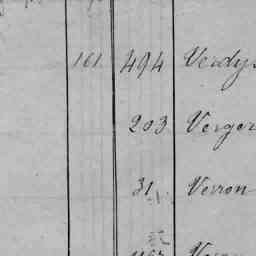 161 494 Verdy
203 Verger
31 Verron